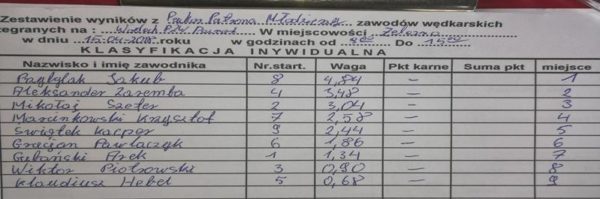 Zestawienie wyników z Puchar Patrona Młodzieży zawodów wędkarskich
zegranych na : W miejscowości Żelazna
w dniu 15-04-2018 roku w godzinach od 8:00 Do 15:00
KLASYFIKACJA INDYWIDUALNA
Nazwisko i imię zawodnika Nr.start. Waga Pkt karne Suma pkt miejsce
Przybylak Jakub 8 4,84 — 1
Aleksander Zaremba 4 3,48 — 2
Mikołaj Szefer 2 3,04 — 3
Marcinkowski Krzysztof 7 2,58 — 4
Świątek Kacper 9 2,44 — 5
Gracjan Pawlaczyk 6 1,86 — 6
Arek 1 1,34 — 7
Wiktor Piotrowski 3 0,90 — 8
Klaudiusz Hebel 5 0,68 — 9